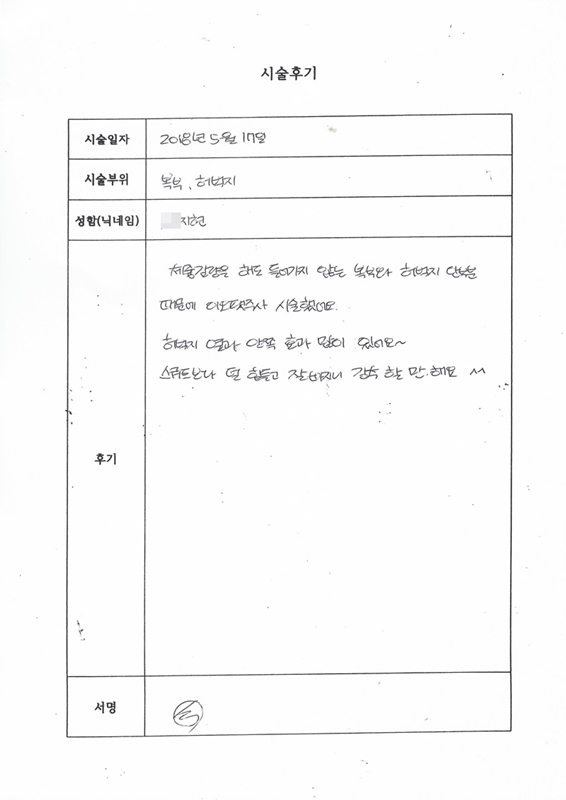 시술후기
시술일자 2018년 5월 17일
시술부위 복부, 허벅지
성함(닉네임) 지현
체중감량을 해도 들어가지 않는 복부와 허벅지 안쪽살
때문에 시술했어요.
허벅지 옆과 안쪽 효과 많이 있어요~
후기 스쿼트보다 덜 힘들고 잘빠지니 감수 할 만.해요 ^^
서명